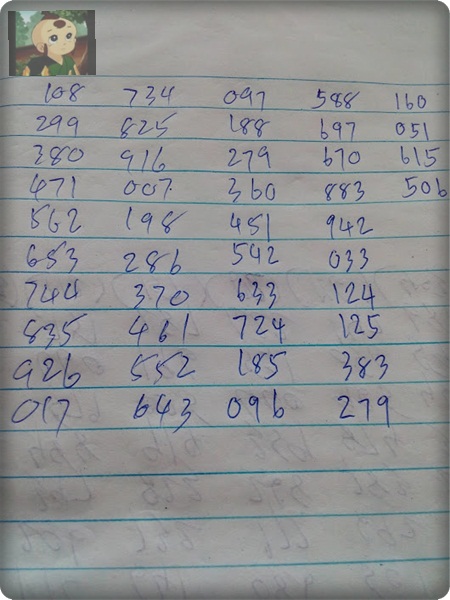 108 734 097 588 160
299 825 188 697 051
380 916 279 670 615
471 007 360 883 506
562 198 451 942
653 286 542 033
744 370 633 124
835 461 724 125
926 552 185 383
017 643 096 279